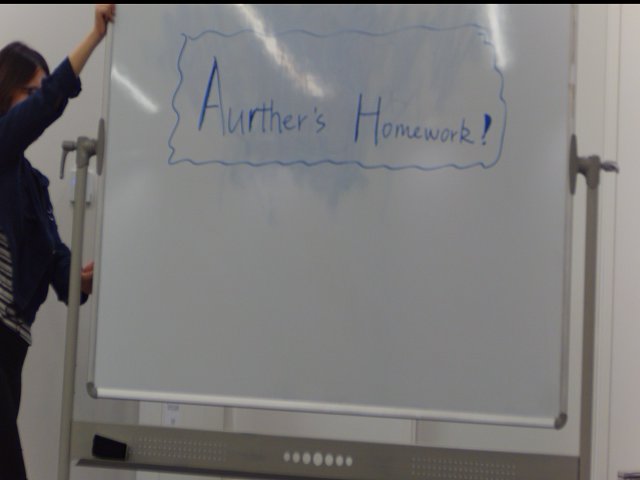 Aurther's Homework!